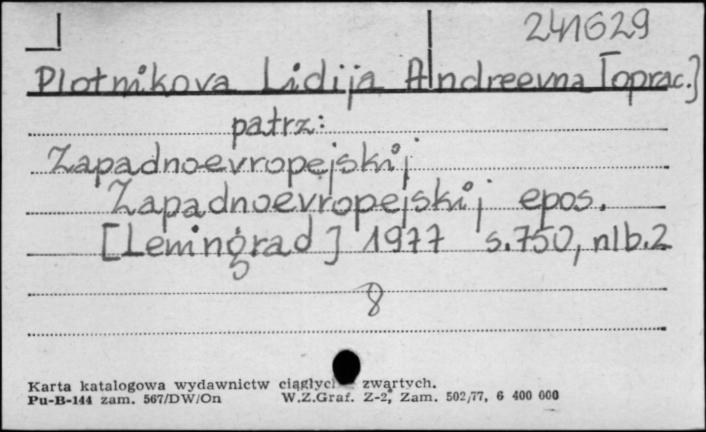 241629
Plotnikova Lidija Andreevna [oprac.]
patrz:
Zapadnoevropejskij
Zapadnoevropejskij epos.
[Leningrad] 1977 s.750, nlb.2
8
Karta katalogowa wydawnictw zwartych.
Pu-B-144 zam. 567/DW/On W.Z.Graf. Z-2, Zam. 502/77, 6 400 000